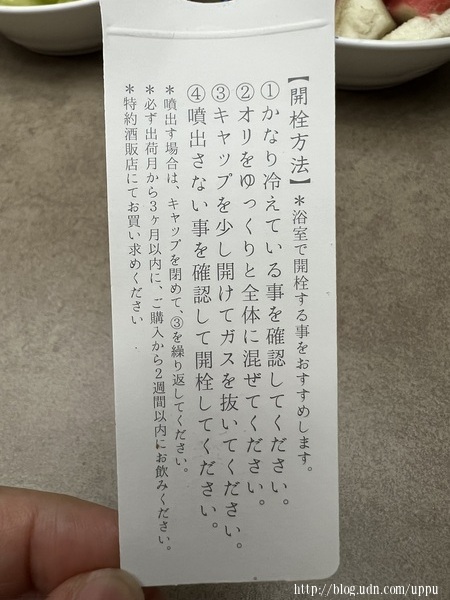 【開栓方法】＊浴室で開栓する事をおすすめします。
①かなり冷えている事を確認してください。
②オリをゆっくりと全体に混ぜてください。
③キャップを少し開けてガスを抜いてください。
④噴出さない事を確認して開栓してください。
＊噴出す場合は、キャップを閉めて、③を繰り返してください。
＊必ず出荷月から3ヶ月以内に、ご購入から2週間以内にお飲みください。
＊特約酒販店にてお買い求めください
http://blog.udn.com/uppu